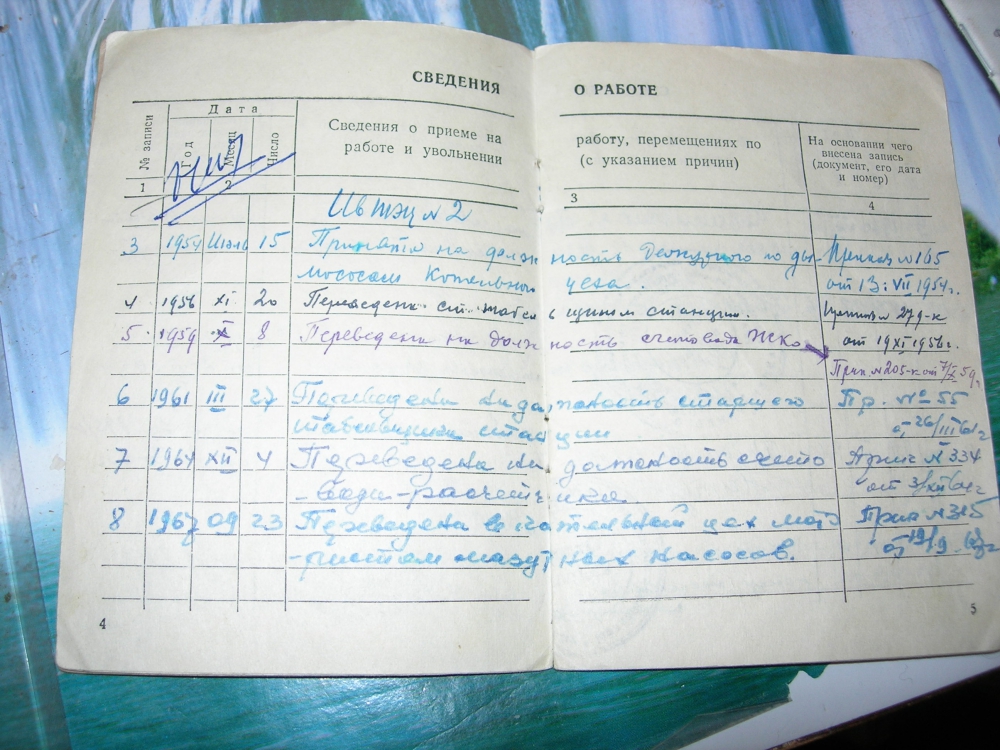 СВЕДЕНИЯ О РАБОТЕ
№ записи
Дата
Год
Месяц
Число
Сведения о приеме на работу, перемещениях по
работе и увольнении (с указанием причин)
На основании чего
внесена запись
(документ, его дата
и номер)
1 2 3 4
Ив тэц №2
3 1954 Июль 15 Принята на должность Дежурного по ды- Приказ №165
мососам Котельного цеха. от 13.VII 1954г.
4 1956 XI 20 Переведена ст. табельщицей станции. 279-к
от 19 XI 1956г.
5 1959 X 8 Переведена на должность счетовода ЖКО
Прик. №205-к от 7/X 59г.
6 1961 III 27 Переведена на должность старшего Пр. №55
табельщика станции от 26/III 61г
7 1964 XII 4 Переведена на должность счето Прик №334
-вода-расчетчика от 3/XII 64г
8 1967 09 23 Переведена в котельный цех мото Прик №315
-ристом мазутных насосов. от 19/9-67г
4
5